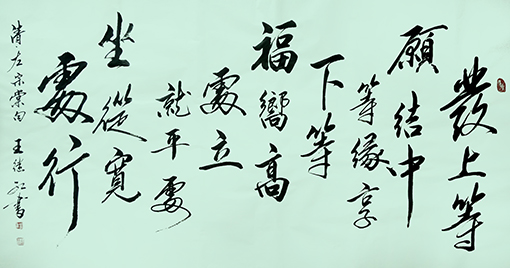 發上等
願結中
等緣享
下等
福嚮高
處立
就平處
坐從寬
處行
清左宗棠句 王继 書